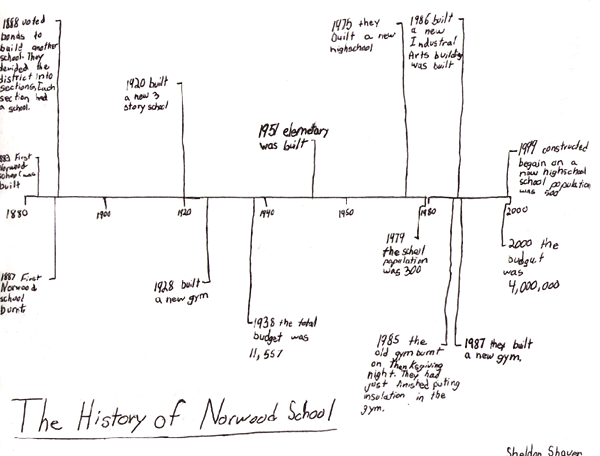 1888 voted
bonds to
build another
school. They
devided the
district into
sections, Each
section had
a school.
1975 they
built a new
highschool
1986 built
a new
Industral
Arts building
was built
1920 built
a new 3
story school
1951 elementary
was built
1883 First
Norwood
school was
built
1999 constructed
begain on a
new highschool
school population
was 500
1880
1900
1920
1940
1950
1980
2000
1887 First
Norwood
school
burnt
1928 built
a new gym
1938 the total
budget was
11,557
1979
the school
population
was 300
2000 the
budget
was
4,000,000
1985 the
old gym burnt
on Thanksgiving
night. They had
just finished puting
insulation in the
gym.
1987 they built
a new gym.
The History of Norwood School
Sheldon